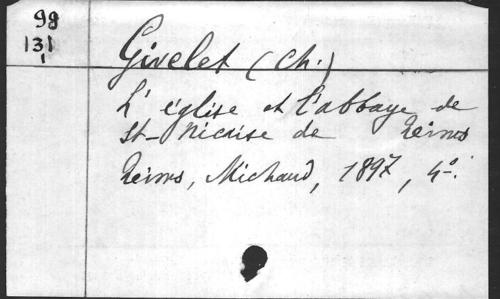 98
131
Givelet (Ch.)
L'église et l'abbaye de
St-Nicaise de Reims
Reims, Michaud, 1897, 4°.